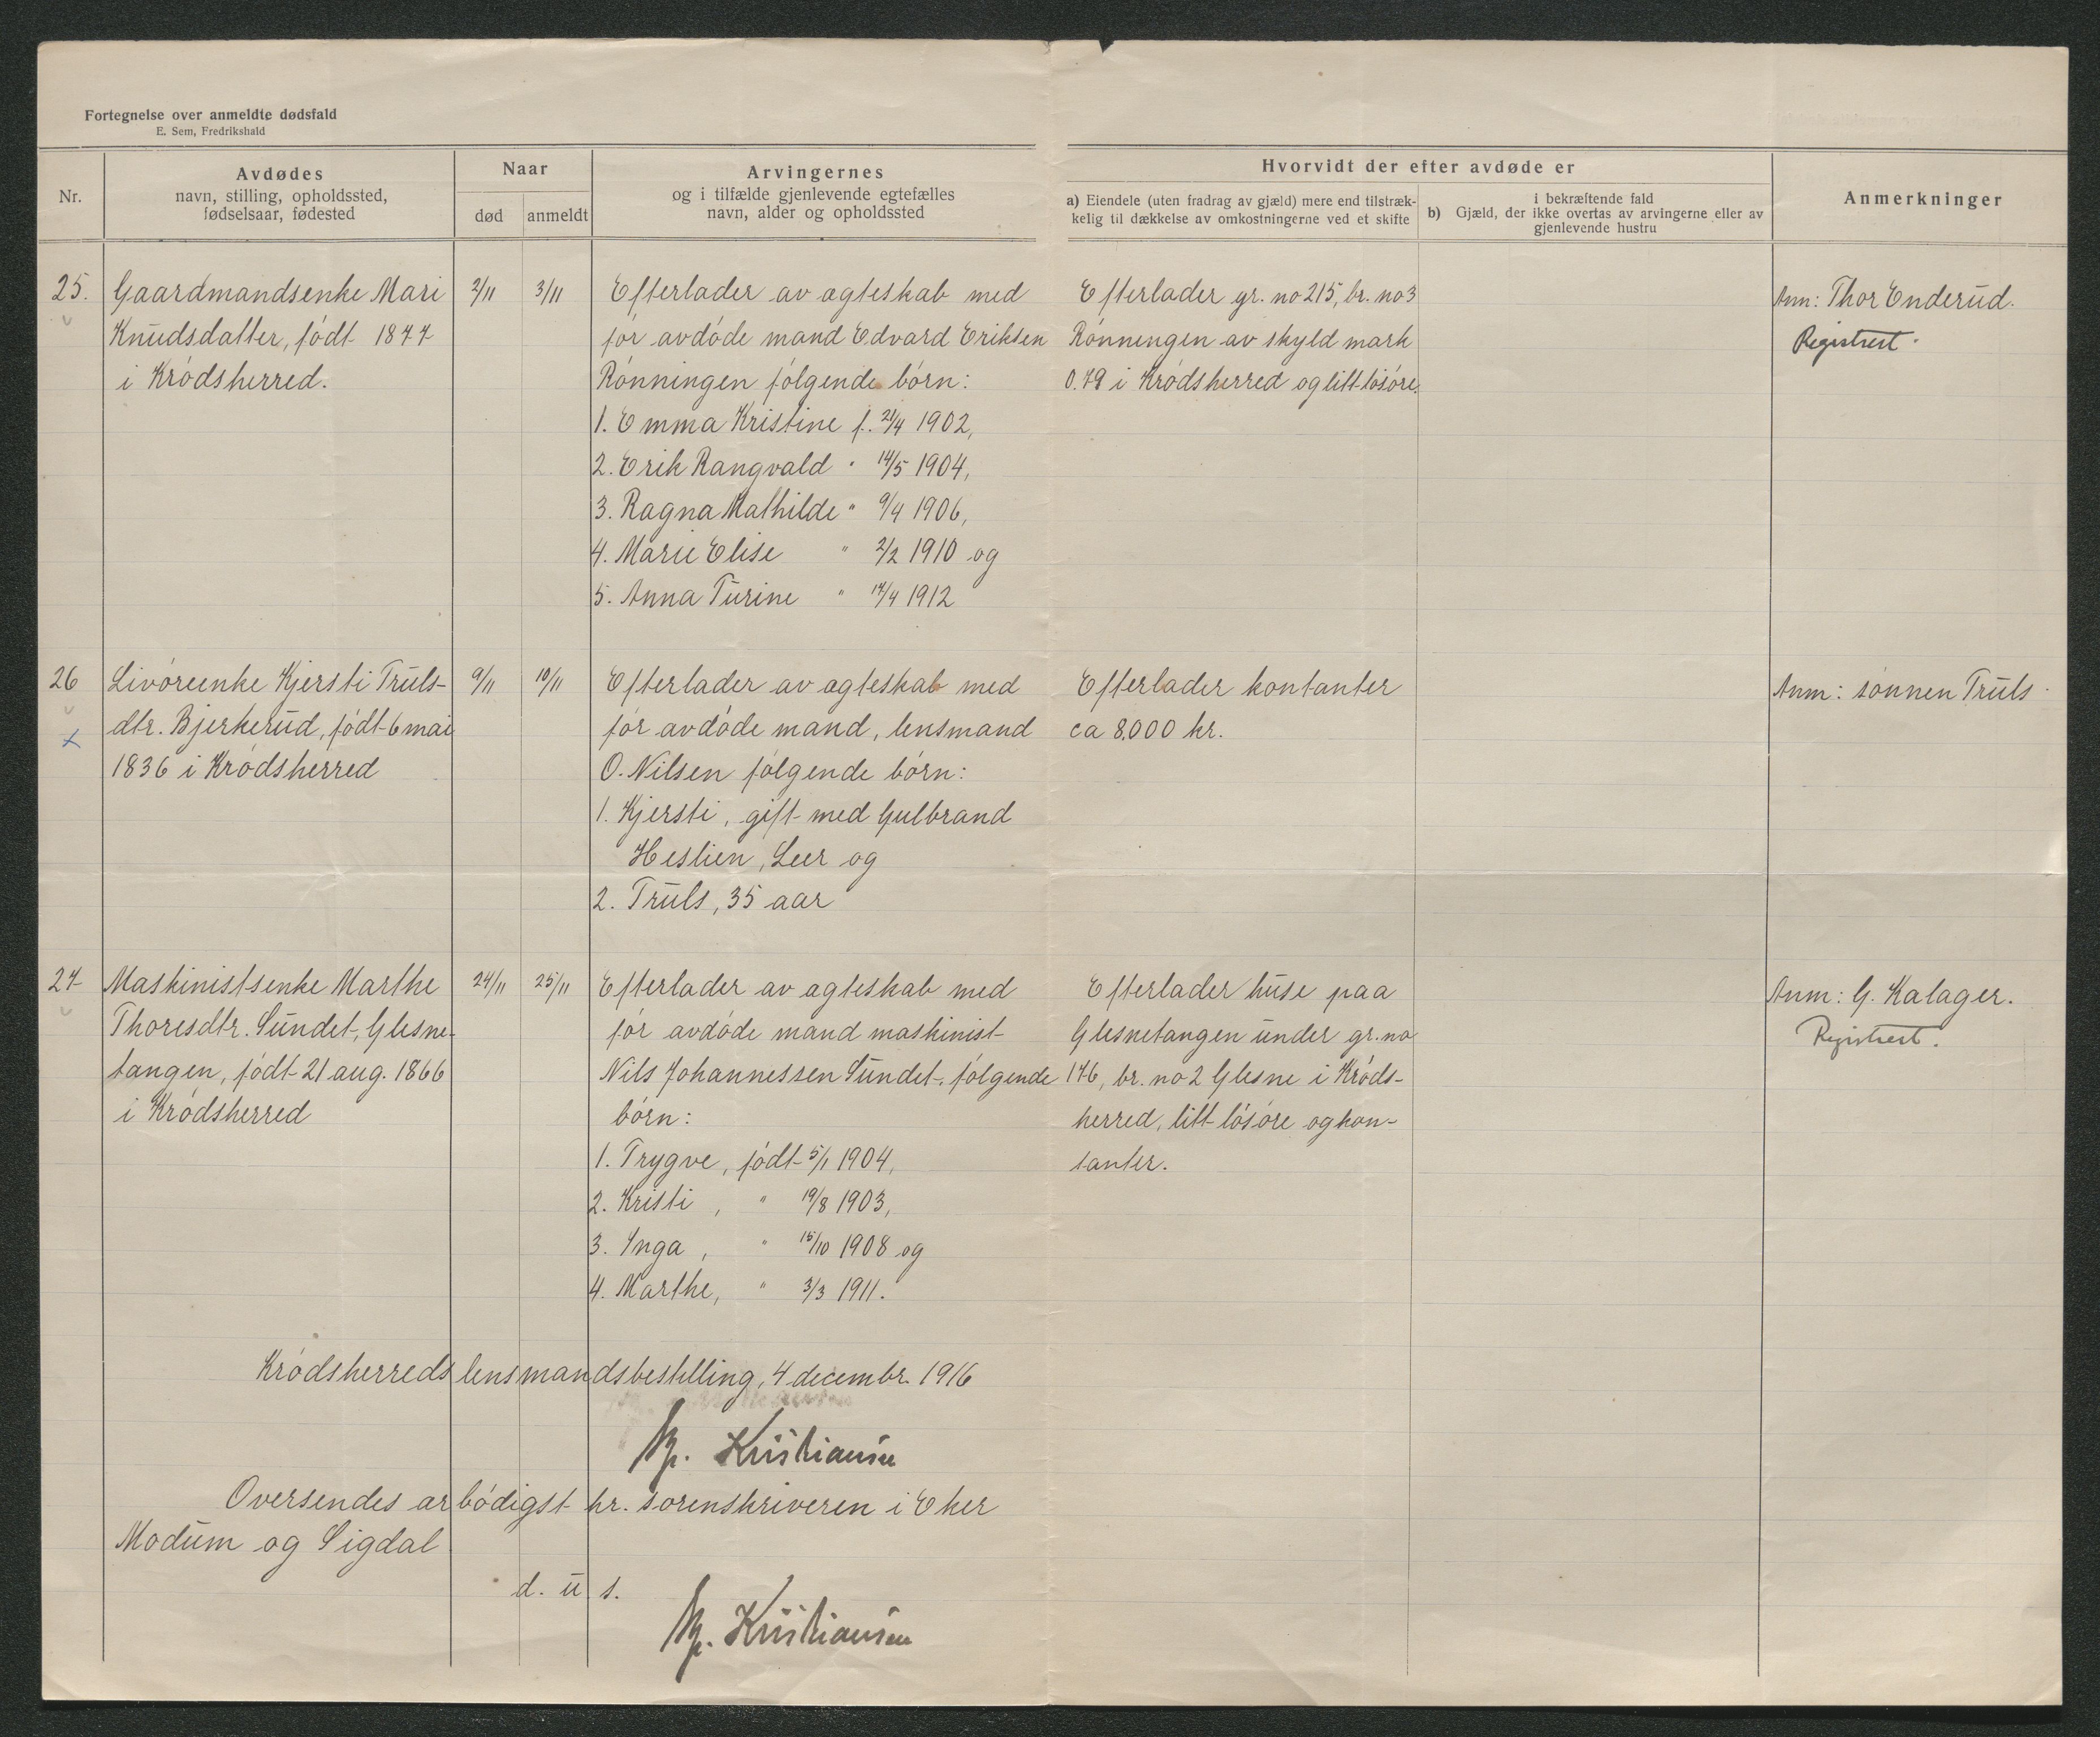 Fortegnelse over anmeldte dødsfald
E. Sem, Fredrikshald
Nr.
Avdødes
navn, stilling, opholdssted,
fødselsaar, fødested
Naar
død
anmeldt
Arvingernes
og i tilfælde gjenlevende egtefælles
navn, alder og opholdssted
Hvorvidt der efter avdøde er
a) Eiendele (uten fradrag av gjæld) mere end tilstræk-
kelig til dækkelse av omkostningerne ved et skifte
i bekræftende fald
b) Gjæld, der ikke overtas av arvingerne eller av
gjenlevende hustru
Anmerkninger
25.
Gaardmandsenke Mari
Knudsdatter, födt 1877
i Krödsherred.
2/11
3/11
Efterlader av egteskab med
för avdöde mand Edvard Eriksen
Rönningen fölgende börn:
1. Emma Kristine f. 21/4 1902,
2. Erik Rangvald " 14/5 1904,
3. Ragna Mathilde " 9/4 1906,
4. Marie Elise " 2/2 1910 og
5. Anna Turine " 17/4 1912
Efterlader gr. no 215, br. no 3
Rönningen av skyld mark
0.79 i Krödsherred og litt lösöre.
Anm: Thor Enderud.
Registrert.
26
Livöreenke Kjersti Truls-
dtr. Bjerkerud, födt 6 mai
1836 i Krödsherred
9/11
10/11
Efterlader av egteskab med
för avdöde mand, lensmand
O. Nilsen fölgende börn:
1. Kjersti, gift med Gulbrand
Heslien, Leer og
2. Truls, 35 aar
Efterlader kontanter
ca 8.000 kr.
Anm: sönnen Truls.
27
Maskinistsenke Marthe
Thoresdtr. Sundet, Glesne-
tangen, födt 21 aug. 1866
i Krödsherred
24/11
25/11
Efterlader av egteskab med
för avdöde mand maskinist
Nils Johannessen Sundet fölgende
börn:
1. Trygve, födt 5/1 1904,
2. Kristi, " 19/8 1903,
3. Inga, " 15/10 1908 og
4. Marthe, " 3/3 1911.
Efterlader huse paa
Glesnetangen under gr. no
176, br. no 2 Glesne i Kröds-
herred, litt lösöre og kon-
tanter.
Anm: G. Kalager.
Registrert.
Krödsherreds lensmandsbestilling, 4 decembr. 1916
Kristiansen
Oversendes ærbödigst hr. sorenskriveren i Eker
Modum og Sigdal
d. u. s.
Kristiansen